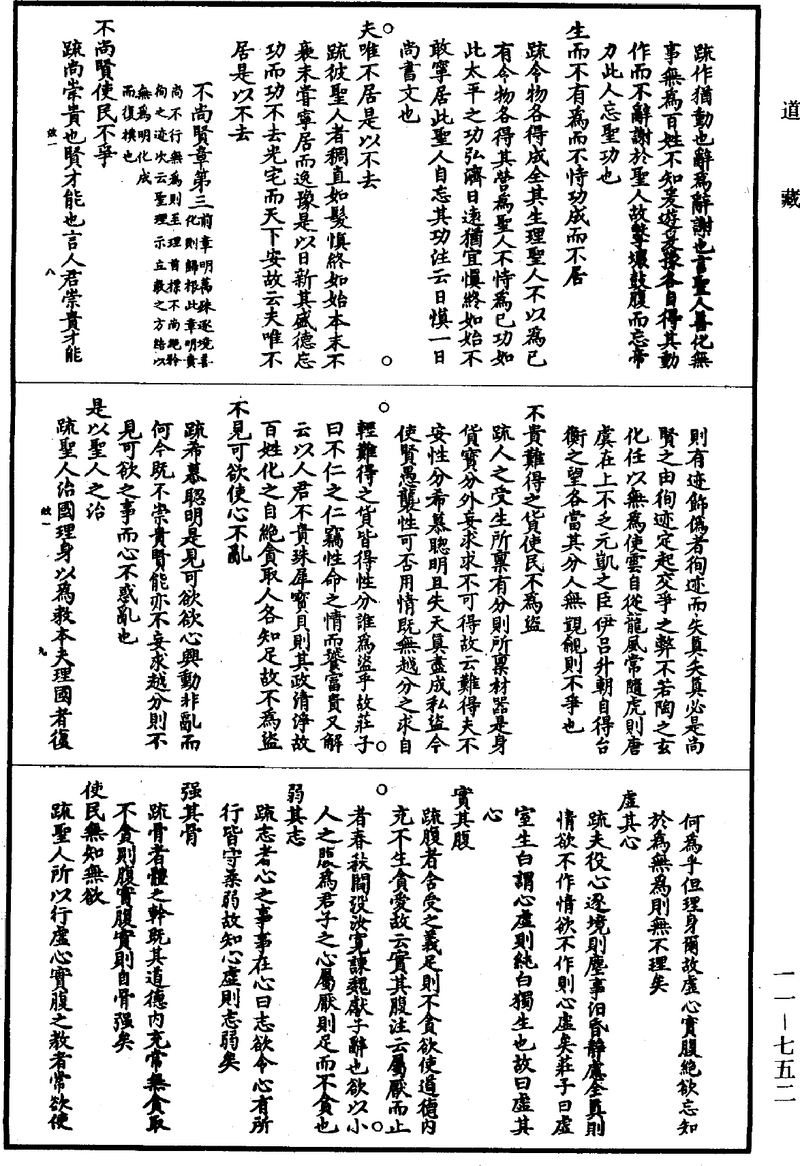 道藏
疏作猶動也辭爲辭謝也言聖人善化無
事無爲百姓不知爰遊爰豫各自得其動
作而不辭謝於聖人故擊壤鼓腹而忘帝
力此人忘聖功也
生而不有爲而不恃功成而不居
疏令物各得成全其生理聖人不以爲已
有令物各得其營爲聖人不恃爲已功如
此太平之功弘濟日遠猶宜慎終如始不
敢寧居此聖人自忘其功注云日慎一日
尚書文也
夫唯不居是以不去
疏彼聖人者稠直如髮慎終如始本末不
衰未嘗寧居而逸豫是以日新其盛德忘
功而功不去光宅而天下安故云夫唯不
居是以不去
不尚賢章第三前章明萬殊逐境善
化則歸根此章明貴
尚不行無爲則至理首標不尚絕矜
徇之迹次云聖理示立教之方結以
無爲明化成
而復樸也
不尚賢使民不爭
疏尚崇貴也賢才能也言人君崇貴才能
效一 八
則有迹飾僞者徇迹而失真失真必是尚
賢之由徇迹定起交爭之弊不若陶之玄
化任以無爲使雲自從龍風常隨虎則唐
虞在上不乏元凱之臣伊呂升朝自得台
衡之望各當其分人無覬覦則不爭也
不貴難得之貨使民不爲盜
疏人之受生所稟有分則所稟材器是身
貨寶分外妄求求不可得故云難得夫不
安性分希慕聰明且失天真盡成私盜今
使賢愚襲性可否用情既無越分之求自
輕難得之貨皆得性分誰爲盜乎故莊子
曰不仁之仁竊性命之情而饕富貴又解
云以人君不貴珠犀寶貝則其政清淨故
百姓化之自絕貪取人各知足故不爲盜
不見可欲使心不亂
疏希慕聰明是見可欲欲心興動非亂而
何今既不崇貴賢能亦不妄求越分則不
見可欲之事而心不惑亂也
是以聖人之治
疏聖人治國理身以爲教本夫理國者復
效一 九
何爲乎但理身爾故虛心實腹絕欲忘知
於爲無爲則無不理矣
虛其心
疏夫役心逐境則塵事汨昏靜慮全真則
情欲不作情欲不作則心虛矣莊子曰虛
室生白謂心虛則純白獨生也故曰虛其
心
實其腹
疏腹者含受之義足則不貪欲使道德內
充不生貪愛故云實其腹注云屬厭而止
者春秋閻沒汝寬諫魏獻子辭也欲以小
人之腹爲君子之心屬厭則足而不貪也
弱其志
疏志者心之事事在心曰志欲令心有所
行皆守柔弱故知心虛則志弱矣
强其骨
疏骨者體之幹既其道德內充常無貪取
不貪則腹實腹實則自骨强矣
使民無知無欲
疏聖人所以行虛心實腹之教者常欲使
一一—七五二